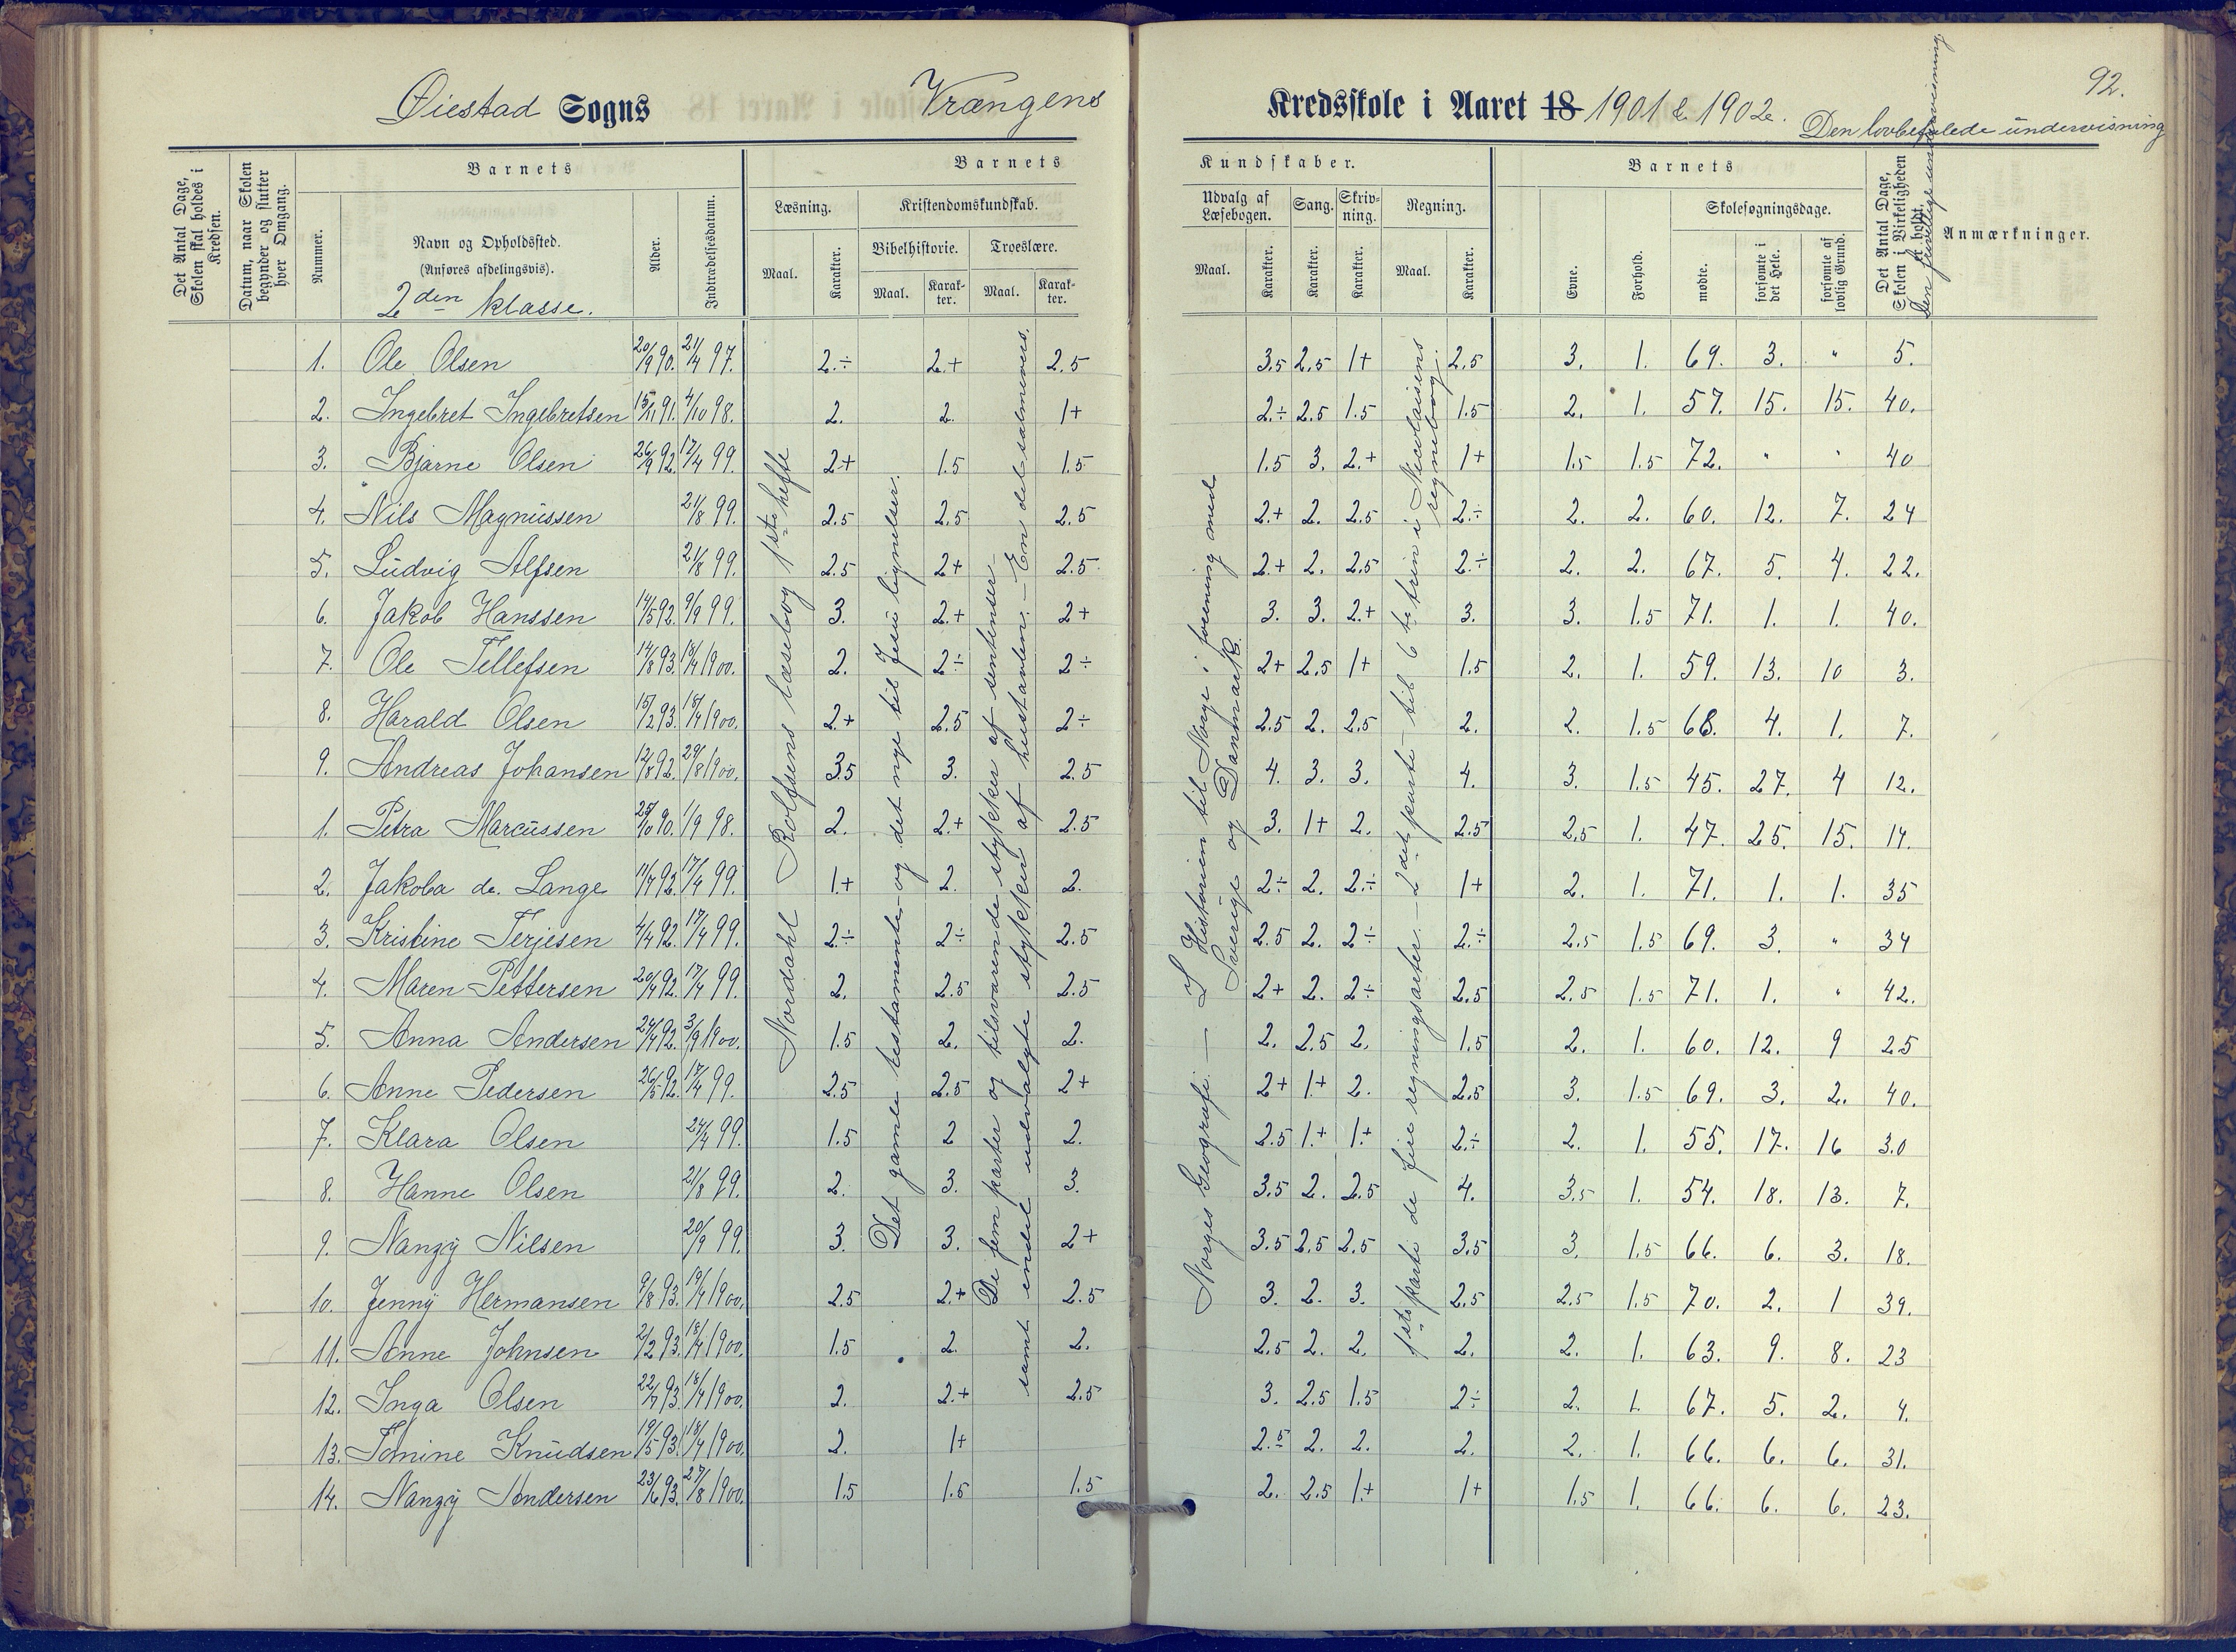 92.
Øiestad Sogns Vrængens Kredsskole i Aaret 18 1901 & 1902. Den lovbefalede undervisning
Det Antal Dage, Skolen skal holdes i Kredsen.
Datum, naar Skolen begynder og slutter hver Omgang.
Barnets
Nummer.
Navn og Opholdssted.
(Anføres afdelingsvis).
2den klasse.
Alder.
Indtrædelsesdatum.
Barnets Kundskaber.
Læsning.
Maal. Karakter.
Kristendomskundskab.
Bibelhistorie.
Maal. Karakter.
Troeslære.
Maal. Karakter.
Udvalg af Læsebogen.
Maal. Karakter.
Sang.
Karakter.
Skrivning.
Karakter.
Regning.
Maal. Karakter.
Barnets
Evne.
Forhold.
Skolesøgningsdage.
mødte.
forsømte i det Hele.
forsømte af lovlig Grund.
Det Antal Dage, Skolen i Virkeligheden er holdt.
Den frivillige undervisning
Anmærkninger.
1. Ole Olsen 20/9 90. 21/4 97. 2.÷ 2.+ 2.5 3.5 2.5 1+ 2.5 3. 1. 69. 3. " 5.
2. Ingebret Ingebretsen 15/11 91. 4/10 98. 2. 2. 1+ 2.÷ 2.5 1.5 1.5 2. 1. 57. 15. 15. 40.
3. Bjarne Olsen 26/9 92. 17/4 99. 2+ 1.5 1.5 1.5 3. 2.+ 1+ 1.5 1.5 72. " " 40
4. Nils Magnussen 21/8 99. 2.5 2.5 2.5 2.+ 2. 2.5 2.÷ 2. 2. 60. 12. 7. 24
5. Ludvig Alfsen 21/8 99. 2.5 2+ 2.5 2.+ 2. 2.5 2.÷ 2. 2. 67. 5. 4. 22.
6. Jakob Hanssen 14/5 92. 9/9 99. 3. 2.+ 2+ 3. 3. 2.+ 3. 3. 1.5 71. 1. 1. 40.
7. Ole Tellefsen 14/8 93. 18/4 1900. 2. 2÷ 2÷ 2+ 2.5 1+ 1.5 2. 1. 59. 13. 10 3.
8. Harald Olsen 15/2 93. 18/4 1900. 2.+ 2.5 2÷ 2.5 2. 2.5 2. 2. 1.5 68. 4. 1. 7.
9. Andreas Johansen 12/8 92. 29/8 1900. 3.5 3. 2.5 4. 3. 3. 4. 3. 1.5 45. 27. 4 12.
1. Petra Marcussen 25/10 90. 1/9 98. 2. 2.+ 2.5 3. 1+ 2. 2.5 2.5 1. 47. 25. 15. 14.
2. Jakoba de. Lange 11/7 92. 17/4 99. 1.+ 2. 2. 2÷ 2. 2.÷ 1+ 2. 1. 71. 1. 1. 35
3. Kristine Terjesen 4/4 92. 17/4 99. 2.÷ 2÷ 2.5 2.5 2. 2÷ 2.÷ 2.5 1.5 69. 3. " 34
4. Maren Pettersen 20/4 92. 17/4 99. 2. 2.5 2.5 2+ 2. 2÷ 2.5 2.5 1.5 71. 1. " 42.
5. Anna Andersen 24/4 92. 3/9 1900. 1.5 2. 2. 2. 2.5 2. 1.5 2. 1. 60. 12. 9 25
6. Anne Pedersen 26/5 92. 17/4 99. 2.5 2.5 2+ 2+ 1.+ 2. 2.5 3. 1.5 69. 3. 2. 40.
7. Klara Olsen 24/4 99. 1.5 2 2. 2.5 1.+ 1.+ 2.÷ 2. 1. 55. 17. 16 30
8. Hanne Olsen 21/8 99. 2. 3. 3. 3.5 2. 2.5 4. 3.5 1. 54. 18. 13. 7.
9. Nanzy Nilsen 20/9 99. 3. 3. 2+ 3.5 2.5 2.5 3.5 3. 1.5 66. 6. 3. 18.
10. Jenny Hermansen 9/8 93. 19/4 1900. 2.5 2.+ 2.5 3. 2. 3. 2.5 2.5 1.5 70. 2. 1 39.
11. Anne Johnsen 2/2 93. 18/4 1900. 1.5 2. 2. 2.5 2. 2. 2. 2. 1. 63. 9. 8. 23
12. Inga Olsen 22/7 93. 18/4 1900. 2. 2.+ 2.5 3. 2.5 1.5 2÷ 2. 1. 67. 5. 2. 4.
13. Tomine Knudsen 19/5 93. 18/4 1900. 2. 1+ 2.5 2. 2. 2. 2. 1. 66. 6. 6. 31.
14. Nanzy Andersen 23/6 93. 27/8 1900. 1.5 1.5 1.5 2. 2.5 1.+ 1+ 1.5 1. 66. 6. 6. 23.
Nordahl Rolfsens læsebog 1ste hefte
Det gamle testamente og det nye til Jesu lignelser.
De fem parter og tilsvarende stykker af sentenser
samt endel udvalgte stykker af hustavlen. – En del salmevers.
Norges Geografi. — Historien til Norge i forening med
Sverige og Danmark.
1ste parti de fire regningsarter. – 2det parti til 6te trin i Nicolaisens
regnebog.